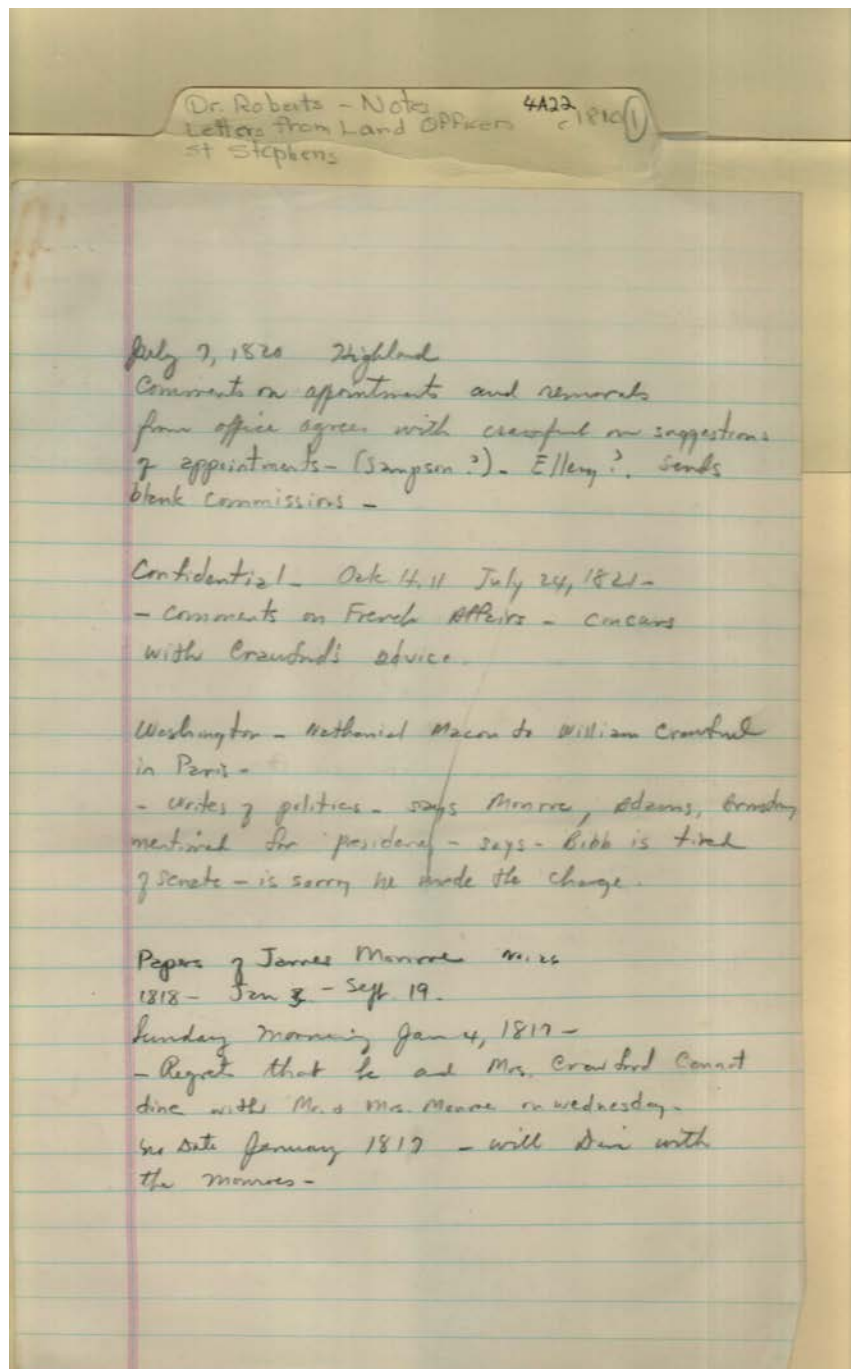 Dr. Roberts - Notes 4A22
Letters from Land Officers c 1820 1
St Stephens
July 7, 1820 Highland
Comments on appointments and removals
from office agrees with Crawford on suggestions
of appointments - (Sampson?) - Ellery?. Sends
blank Commissions -
Confidential - Oak Hill July 24, 1821 -
- Comments on French Affairs - Concurs
with Crawford's advice.
Washington - Nathaniel Macon to William Crawford
in Paris -
- writes of politics - says Monroe, Adams,
mentioned for - says - Bibb is tired
of Senate - is sorry he made the change.
Papers of James Monroe
1818 - Jan 3 - Sept. 19.
Sunday Morning Jan 4, 1817 -
- Regret that he and Mrs. Crawford Cannot
dine with Mr. & Mrs. Monroe on wednesday.
No Date January 1817 - will with
the Monroes -